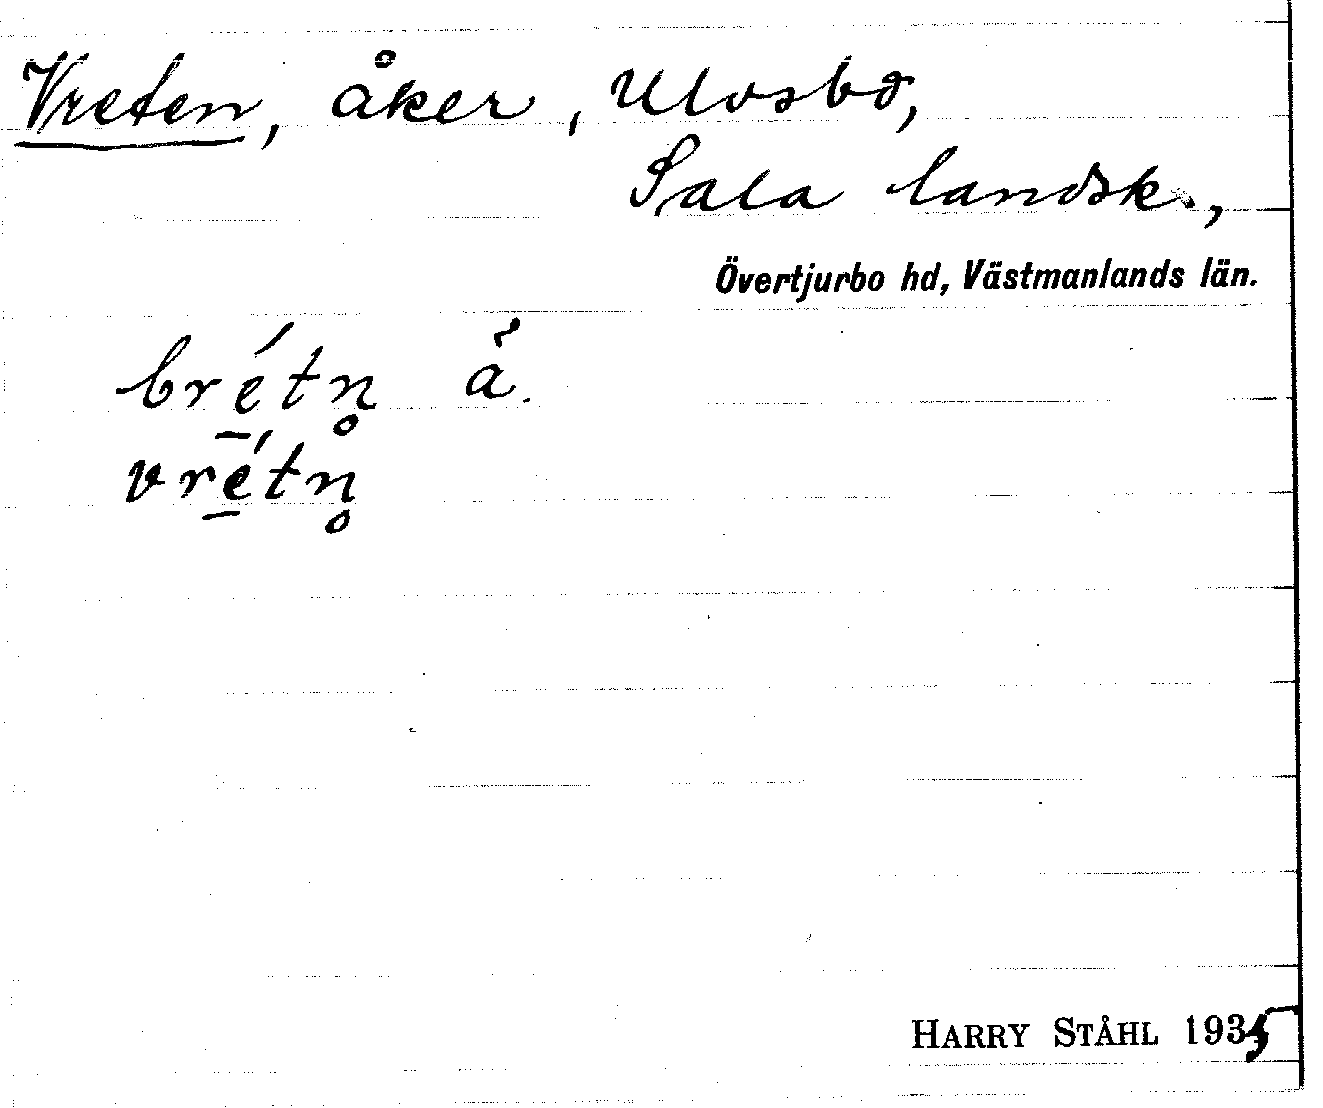 Vreten, åker, Ulvsbo,
Sala landsk.,
Övertjurbo hd, Västmanlands län.
bré̱tn̥ ä.
vré̱tn̥
HARRY STÅHL 1935